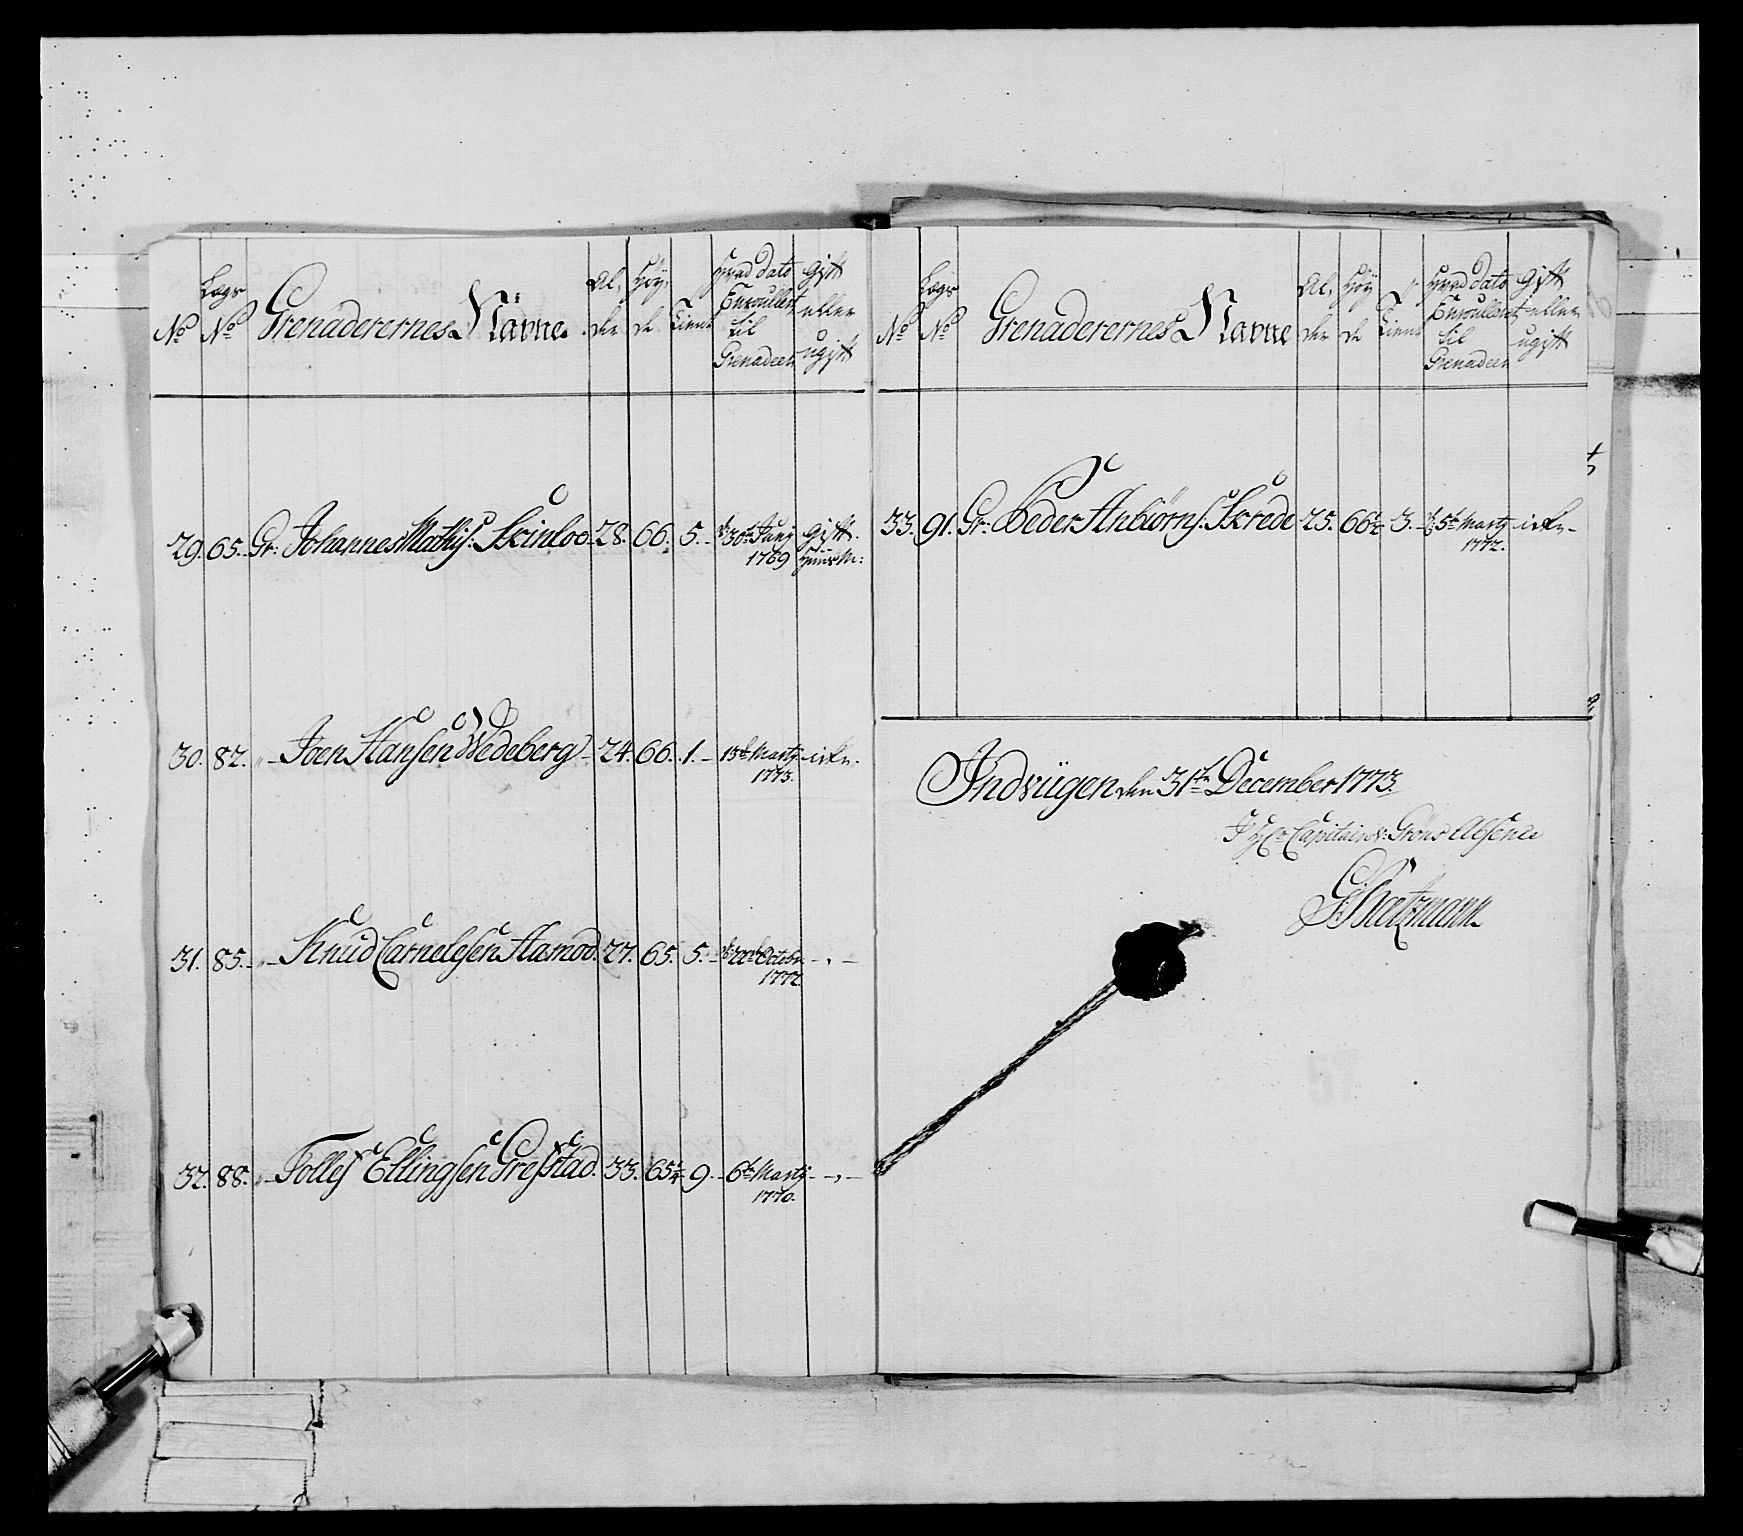 No
Lægs No
Grenaderernes Navne
Al, der
Höy, de
Tient
Hvad dato Enroullert til Grenadeer
Gift eller ugift
29. 65. Gr: Johannes Mathis: Skinloo 28. 66. 5. 30te Junij 1769 Gift. Huusm:
30. 82. " Joen Hansen Wedeberg 24. 66. 1. 13de Martij 1773. icke.
31. 85. " Knud Carnelesen Hamod. 27. 65. 5. Octobr. 1772 - " -
32. 88. " Tolles Ellingsen Gresstad. 33. 65 9. 6te Martij 1770. - " -
No
Lægs No
Grenaderernes Navne
Al, der
Höy de
Tient
Hvad dato Enroullert til Grenadeer
Gift eller ugift
33. 91. Gr: Peder Anbiörns. Skrede 25. 66½ 3. 5te Martij 1772. icke
Indviigen den 31te December 1773.
Capitain v: Gröns Absence